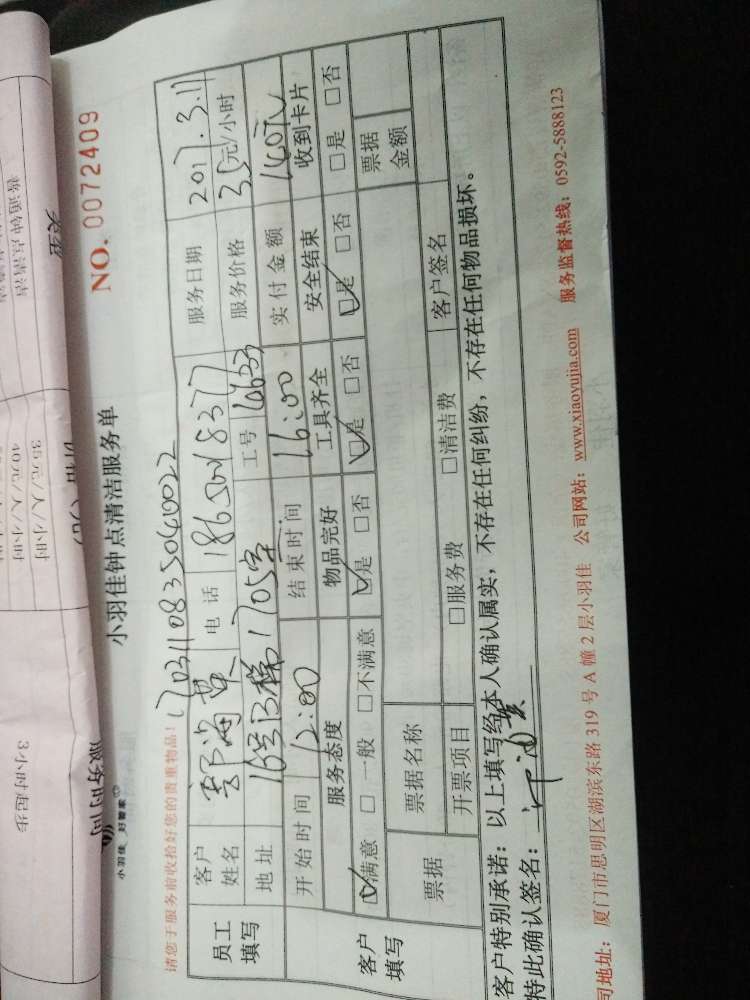 小羽佳 好管家
小羽佳钟点清洁服务单
NO. 0072409
请您于服务前收拾好您的贵重物品! 1703110835040022
员工填写
客户姓名 郭海英 电话 服务日期 2017.3.11
地址 16号B梯1705室 工号 服务价格 35元/小时
开始时间 12:00 结束时间 16:00 实付金额 140元
客户填写
服务态度 物品完好 工具齐全 安全结束 收到卡片
☑满意 □一般 □不满意 ☑是 □否 ☑是 □否 ☑是 □否 □是 □否
票据 票据名称 票据金额
开票项目 □服务费 □清洁费 客户签名
客户特别承诺: 以上填写经本人确认属实, 不存在任何纠纷, 不存在任何物品损坏。
特此确认签名:
司地址: 厦门市思明区湖滨东路 319 号 A 幢 2 层小羽佳 公司网站: www.xiaoyujia.com 服务监督热线: 0592-5888123
类型
普通钟点清洁
35元/人/小时
40元/人/小时
服务时间
3小时起步